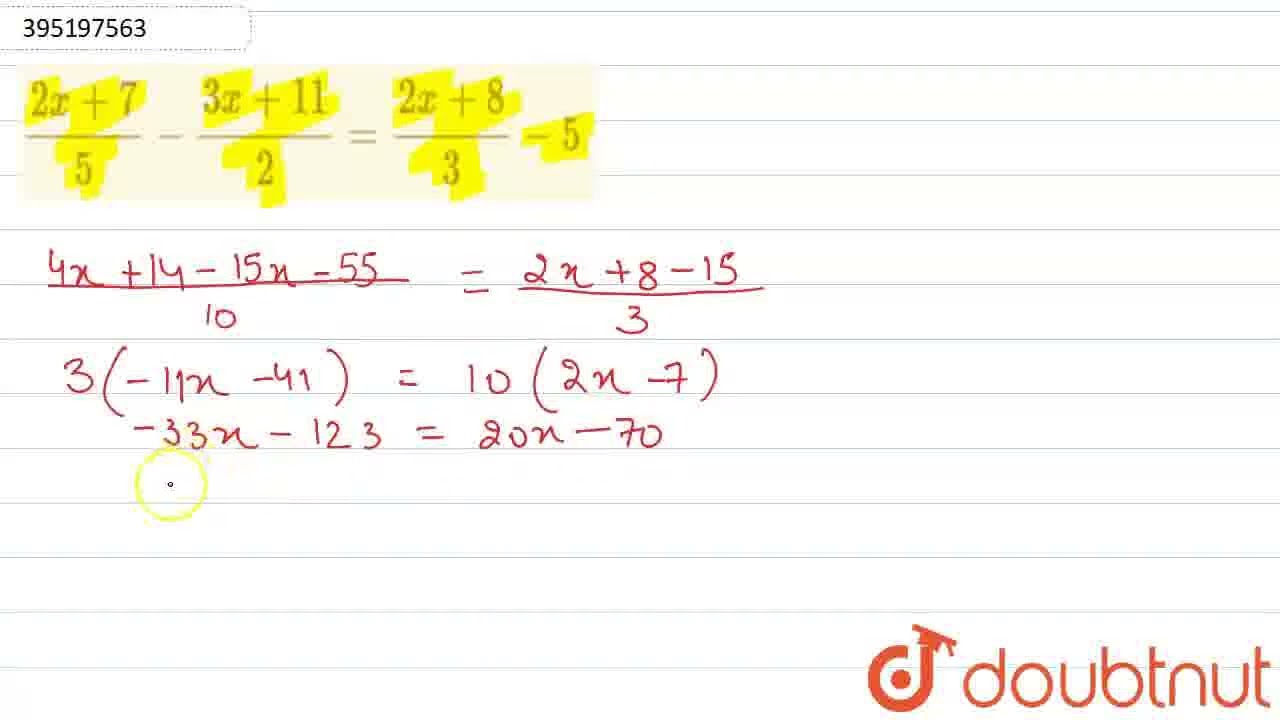 395197563
2x + 7 / 5 − 3x + 11 / 2 = 2x + 8 / 3 − 5
4x + 14 − 15x − 55 / 10 = 2x + 8 − 15 / 3
3(−11x − 41) = 10(2x − 7)
−33x − 123 = 20x − 70
doubtnut